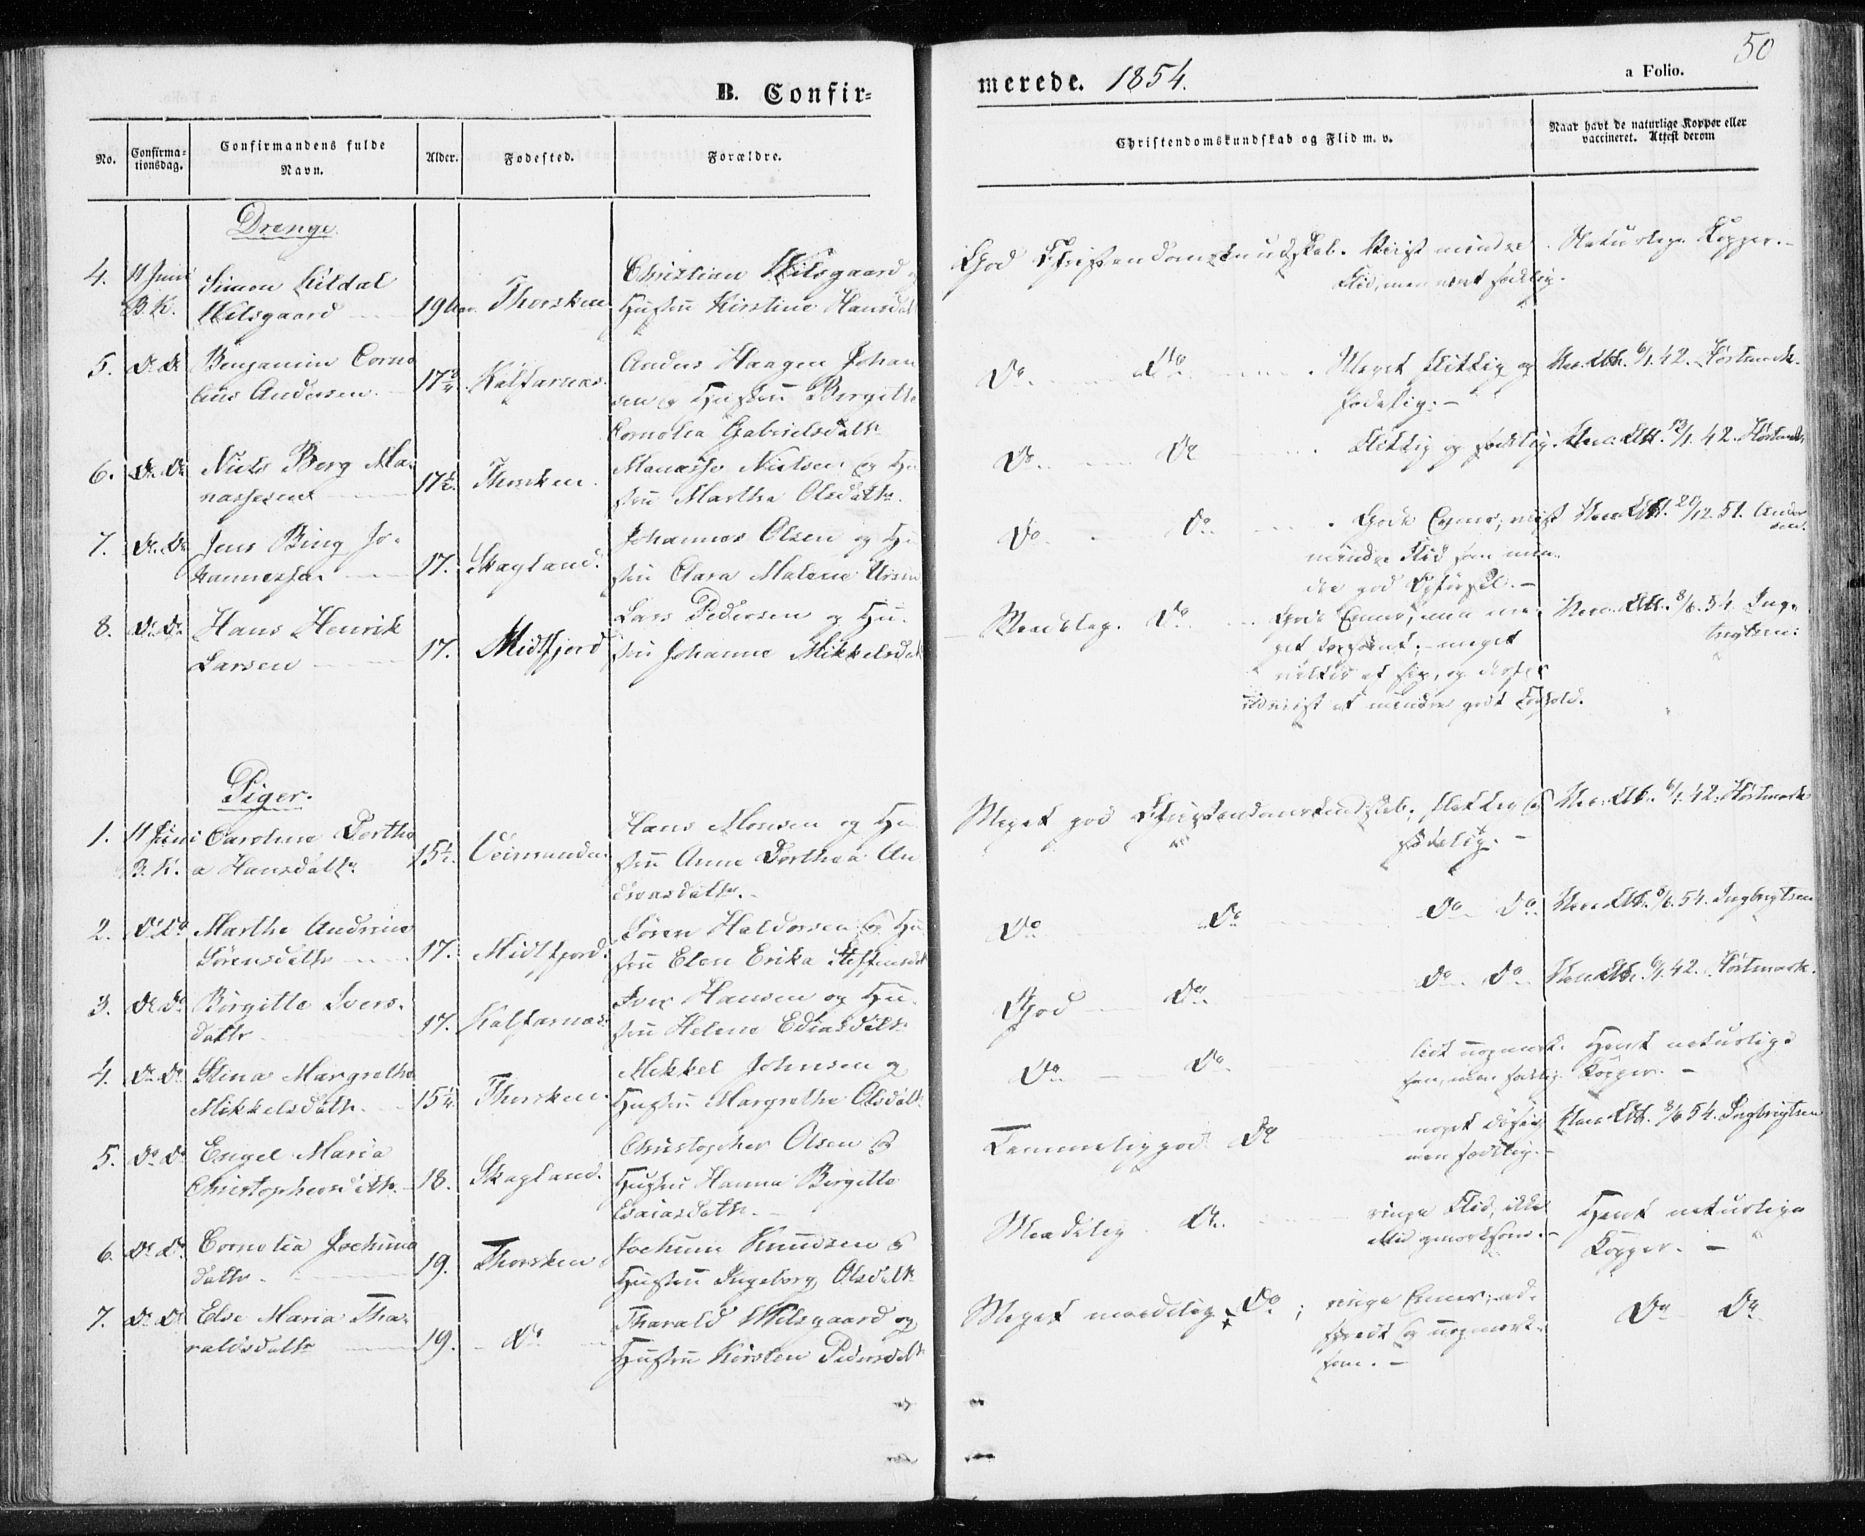 B. Confir=
merede. 1854.
a Folio.
50
No.
Confirma=
tionsdag.
Confirmandens fulde
Navn.
Alder.
Fødested.
Forældre.
Christendomskundskab og Flid m. v.
Naar havt de naturlige Kopper eller
vaccineret. Attest derom
Drenge.
4. 11 Juni
B.K.
Simon Kildal
Hilsgaard
19
Thorsken
Christian Hilsgaard
Hustru Kirstine Hansd
God Christendomskundskab. Viist mindre
Flid, men sædelig.
Naturlige Kopper.
5. Do Do
Benjamin Corne
lius Andersen.
17¾
Kalfarnæs.
Anders Haagen Johan
sen og Hustru Birgitte
Cornelia Gabrielsdatt
Do Do Meget flittig og
sædelig.
Vac. Att. 6/1. 42. Høstmark.
6. Do Do
Niels Berg Ma-
nassesen
17½.
Thorsken.
Manasse Nielsen og Hu
stru Marthe Olsdatter.
Do Do Flittig og sædelig.
Vac. Att. 42. Høstmark
7. Do Do
Jens Bing Jo-
hannessen
17.
Skagland.
Johannes Olsen og Hu
stru Clara Malene
Do Do Gode Evner, viist
mindre Flid
dre god Opførsel.
Vac. Att. 12. 51. Ander
sen.
8. Do Do
Hans Henrik
Larsen
17.
Midtfjord
Lars Pedersen og Hu-
stru Johanne Mikkelsd
Maadelig. Do Gode Evner, men
meget
af sig, og
udviist et mindre godt Forhold.
Vac. Att. 8/6. 54. Ing-
brigtsen.
Piger.
1. 11 Juni
B.K.
Caroline Dorthe
a Hansdatter
15½.
Veimanden
Hans Monsen og Hu
stru Anne Dorthea An
dreasdatter.
Meget god Christendomskundskab; flittig og
sædelig.
Vac. Att. 6/1. 42. Høstmark
2. Do Do
Marthe Andrine
Sørensdatter
17.
Midtfjord.
Søren Haldorsen og Hu
stru Elen Erika Steffensd
Do Do Do Do
Vac. Att. 8/6. 54. Ingbrigtsen
3. Do Do
Birgitte Ivers-
datter
17.
Kalfarnæs
Iver Hansen og Hu-
stru Helene Ediasdatt
God Do Do Do
Vac. Att. 6/1. 42. Høstmark.
4. Do Do
Stina Margrethe
Mikkelsdatter.
15¼
Thorsken.
Mikkel Johnsen og
Hustru Margrethe Olsdatt
Do Do lidt uopmærk-
som, men sædelig.
Havt naturlige
Kopper.
5. Do Do
Engel Maria
Christophersdatter
18.
Skagland.
Christopher Olsen og
Hustru Hanna Birgitte
Esaiasdatter.
Temmelig god Do noget
men sædelig.
Vac. Att. 8/6 54. Ingbrigtsen
6. Do Do
Cornelia Jochims
datter.
19.
Thorsken
Jochim Knudsen og
Hustru Ingeborg Olsdatt
Maadelig Do ringe Flid, ikke
altid opmærksom.
Havt naturlige
Kopper.
7. Do Do
Else Maria Tha-
raldsdatter
19.
Do
Tharald Hilsgaard og
Hustru Kirsten Pedersdatt
Meget maadelig Do; ringe Evner; ad-
spredt og uopmærk-
som.
Do Do